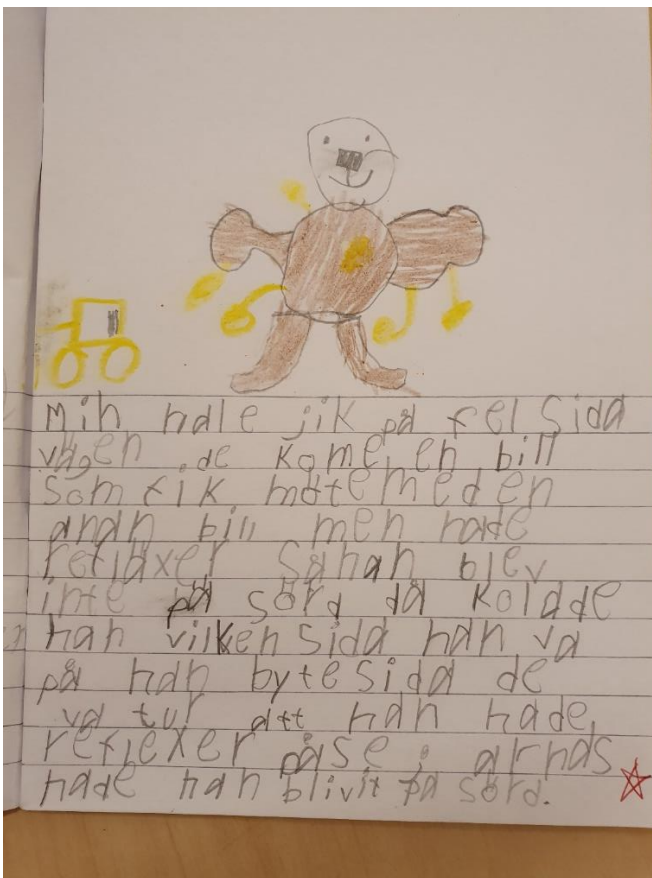 Min nale jik på fel sida
vägen de komer en bill
som fik möte med en
anan bill men hade
refläxer så han blev
inte på sörd då kolade
han vilken sida han va
på han byte sida de
va tur att han hade
reflexer på se i arnas
hade han blivit på sörd.